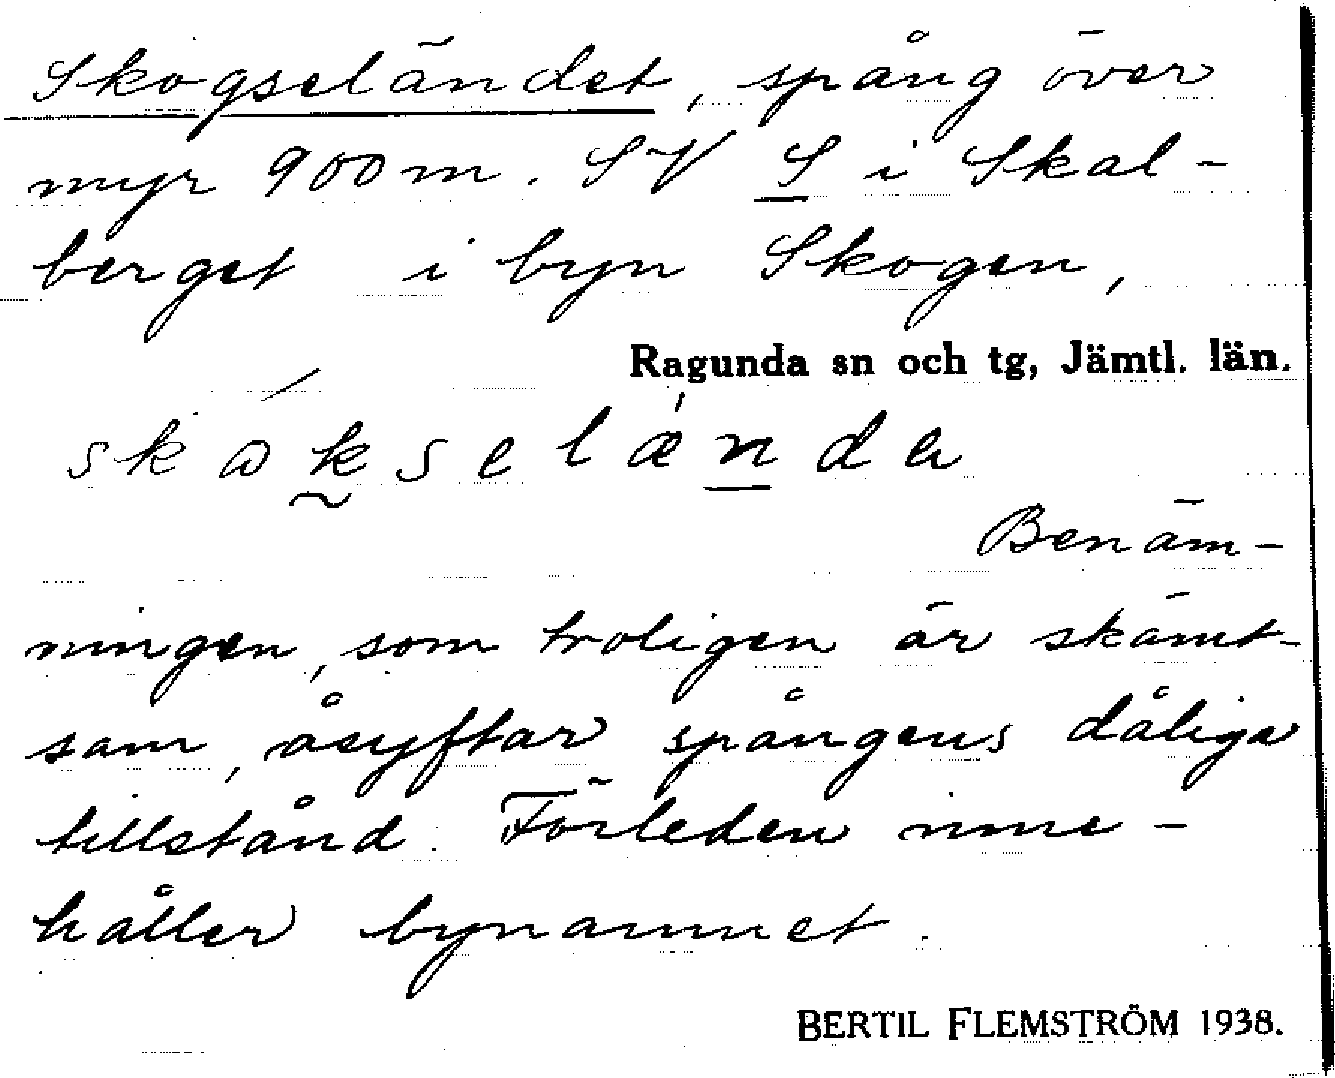 Skogseländet, spång över
myr 900 m. SV S i Skal-
berget i byn Skogen,
Ragunda sn och tg, Jämtl. län.
Benäm-
ningen, som troligen är skämt-
sam, åsyftar spångens dåliga
tillstånd. Förleden inne-
håller bynamnet.
BERTIL FLEMSTRÖM 1938.